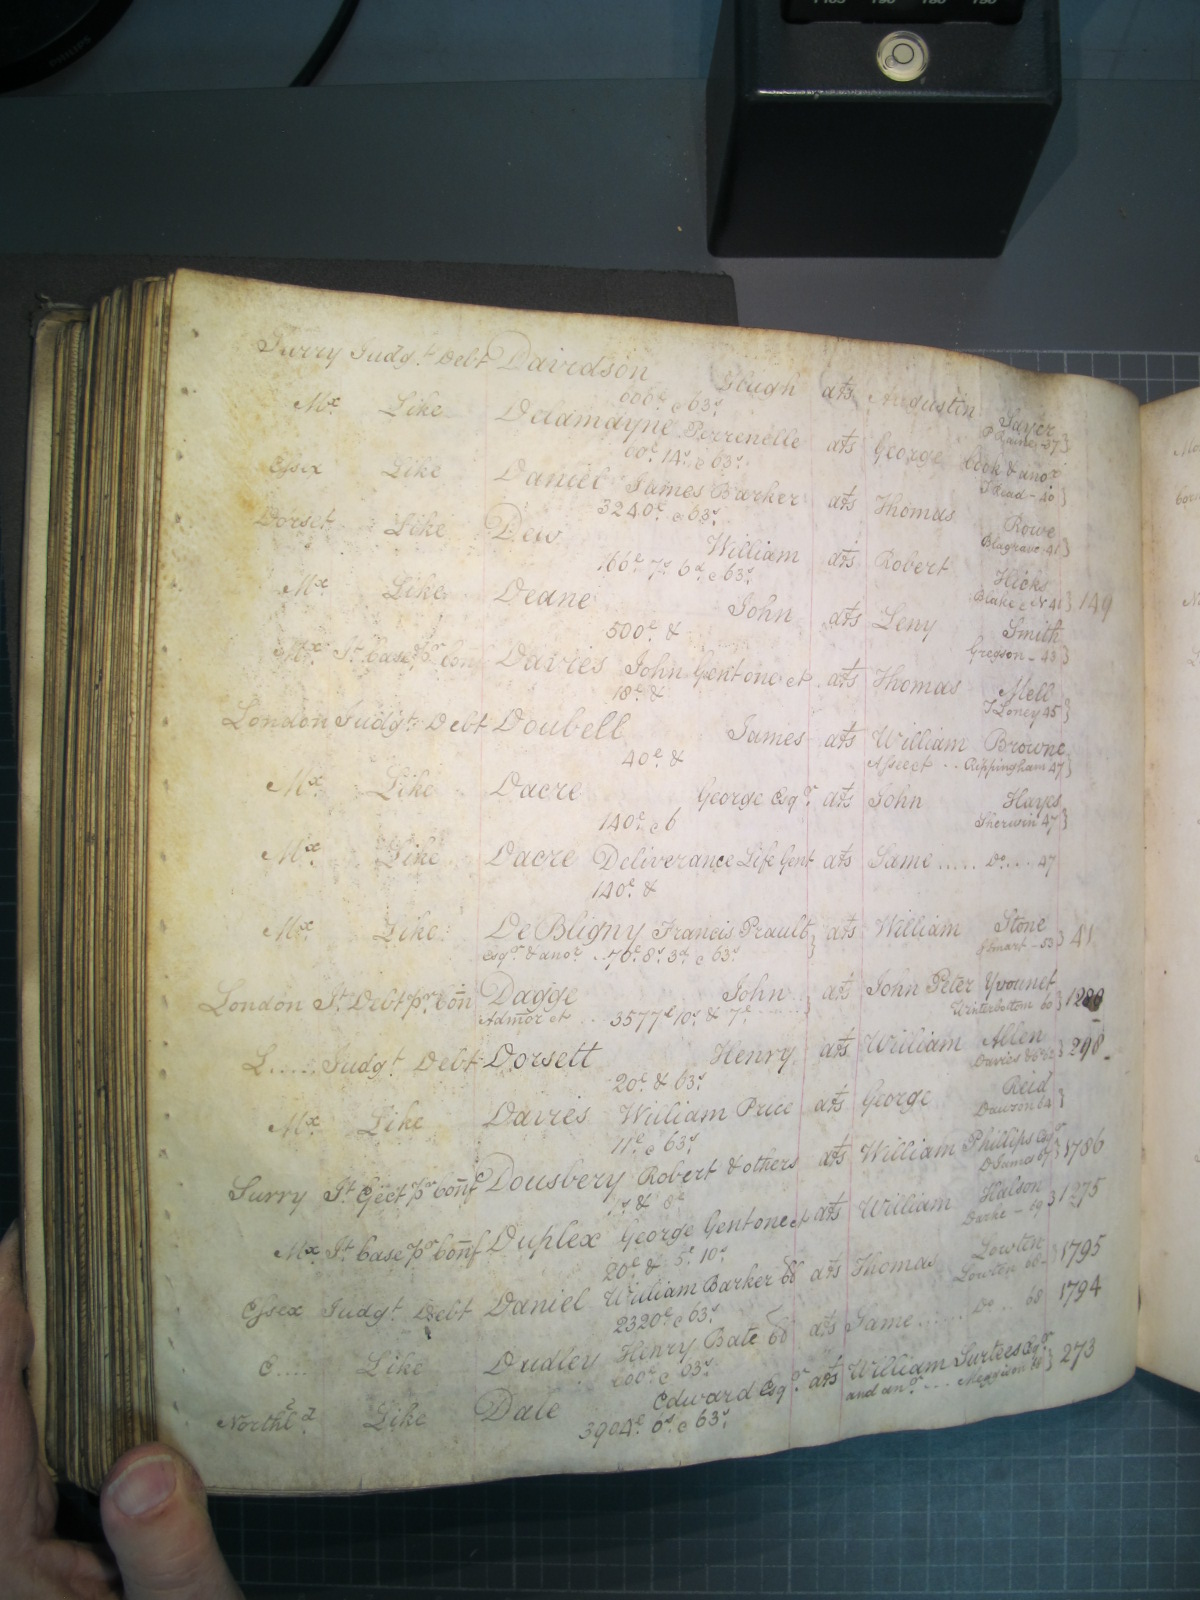 Surry Judg.t Debt Davidson Hugh ats Augustin Sayer
606£ & 63s P Raines 37}
Mx Like Delamayne Perrenelle ats George Cook & anor
60£ 14s & 63s. J Read - 40}
Essex Like Daniel James Barker ats Thomas Rowe
3240£ & 63s. Blagrave 41}
Dorset Like Dew William ats Robert Hicks
166£ 7s 6d & 63s. Blake 41} 149
Mx Like Deane John ats Leny Smith
500£ & Gregson - 43}
Mx Jt Case pr Conf Davies John Gent one et ats Thomas Mell
18£ & T Loney 45}
London Judgt Debt Doubell James ats William Browne
40£ & Assect .. Rippingham 47}
Mx Like Dacre George Esqr ats John Hayes
140£ & 6 Sherwin 47}
Mx Like Dacre Deliverance Life Gent ats Same ..... Do .... 47
140£ &
Mx Like De Bligny Francis Prault} ats William Stone
Esqr & anor .. 70£ 8s 3d & 63s. Smart - 53} 41
London Jt Debt pr Con Dagge John ... ats John Peter Yvounet
Admor et ... 3577£ 10s & 7£ Winterbotton 60} 1280
L..... Judgt Debt Dorsett Henry ats William Allen
20£ & 63s Davies 298
Mx Like Davies William Price ats George Reid
11£ & 63s Dawson 64}
Surry Jt Eject pr Conf Dousbery Robert & others ats William Phillips Esqr
1s & 8£ D James 67} 1786
Mx Jt Case pr Conf Duplex George Gent one et ats William Halson
20£ & 5£ 10s Darke - 19} 1275
Essex Judgt Debt Daniel William Barker ats Thomas Lowten
2320£ & 63s Lowten 68} 1795
E..... Like Dudley Henry Bate ats Same ...... Do ... 68 1794
600£ & 63s
Northld Like Dale Edward Esqr ats William Surtees Esqr
3904£ 6s & 63s and anr .... Meggison} 273